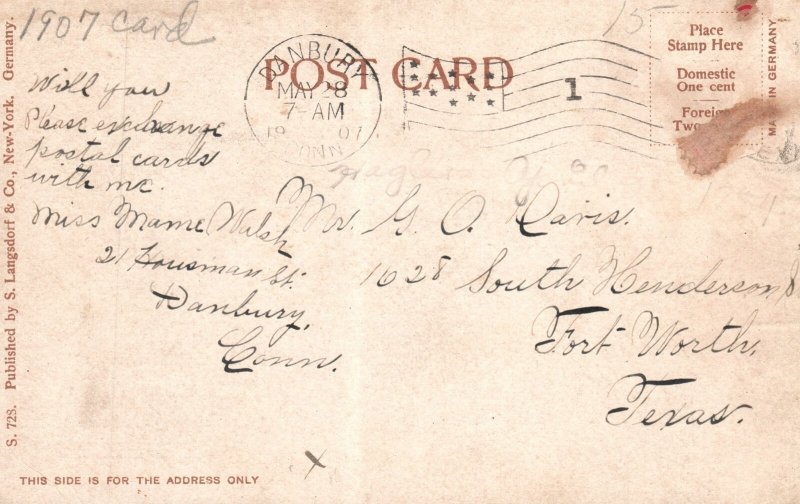 1907 Card
15-
POST CARD
DANBURY
MAY 8
7-AM
1907
CONN
1
Place
Stamp Here
Domestic
One cent
Foreign
Two
MADE IN GERMANY
Will you
Please exchange
postal cards
with me.
Miss Mame Walsh
21 Housman St.
Danbury,
Conn.
Mr. G. O. Davis.
1628 South Henderson S
Fort Worth,
Texas.
S. 728. Published by S. Langsdorf & Co., New-York. Germany.
THIS SIDE IS FOR THE ADDRESS ONLY
x